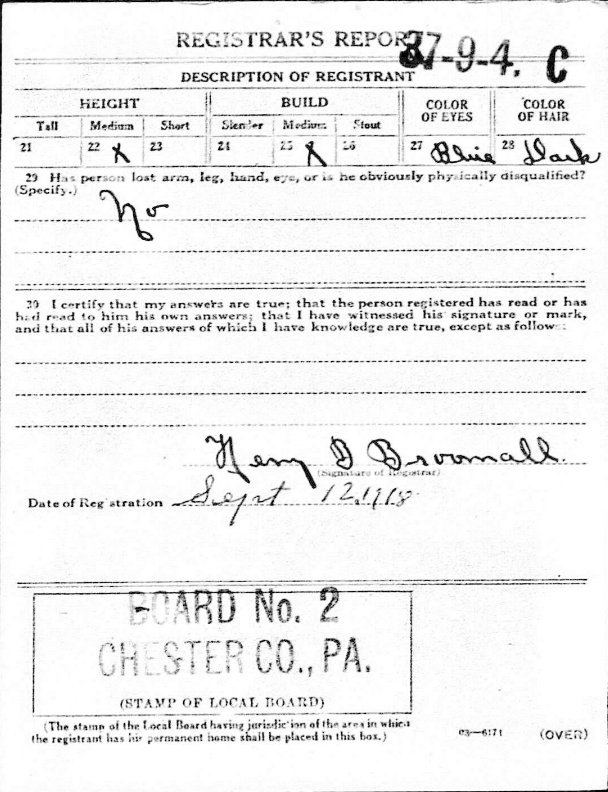 REGISTRAR'S REPORT
37-9-4. C
DESCRIPTION OF REGISTRANT
HEIGHT BUILD COLOR OF EYES COLOR OF HAIR
Tall Medium Short Slender Medium Stout
21 22 X 23 24 25 X 26 27 Blue 28 Dark
29 Has person lost arm, leg, hand, eye, or is he obviously physically disqualified?
(Specify.)
No
30 I certify that my answers are true; that the person registered has read or has
had read to him his own answers; that I have witnessed his signature or mark,
and that all of his answers of which I have knowledge are true, except as follows:
Henry D Broomall.
(Signature of Registrar)
Date of Registration Sept 12, 1918
BOARD No. 2
CHESTER CO., PA.
(STAMP OF LOCAL BOARD)
(The stamp of the Local Board having jurisdiction of the area in which
the registrant has his permanent home shall be placed in this box.)
03—6171 (OVER)